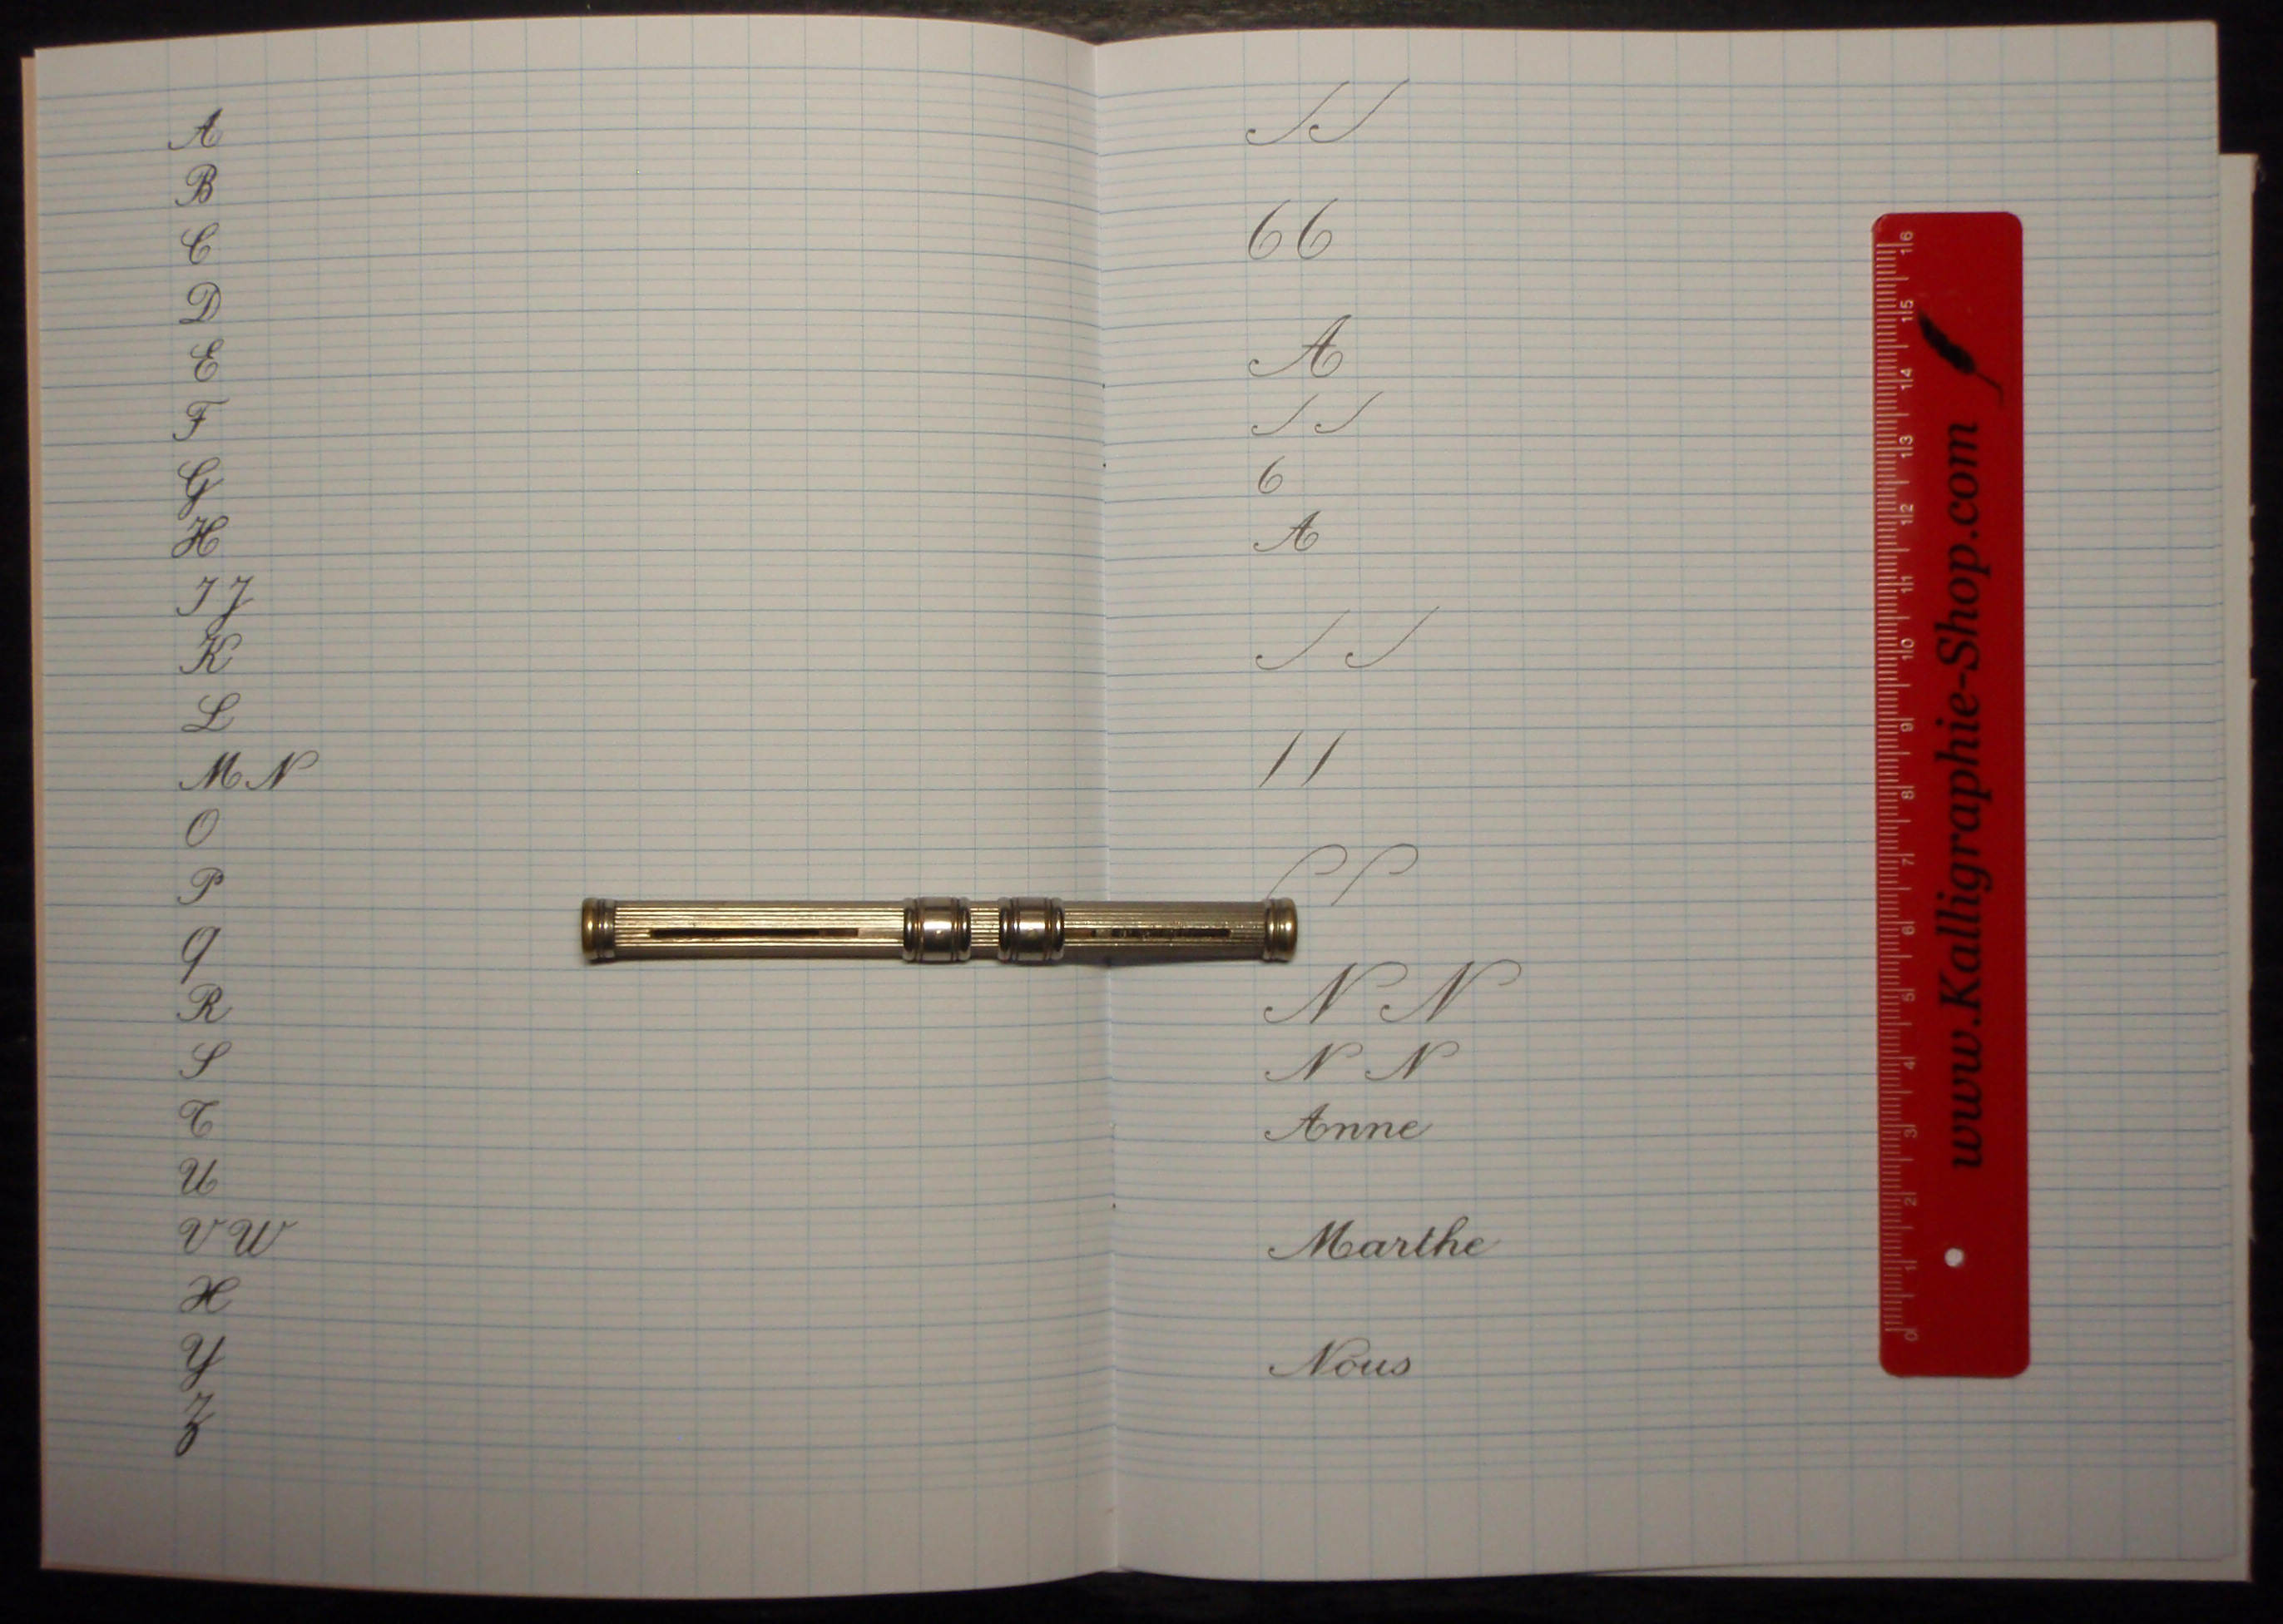 A
B
C
D
E
F
G
H
I J
K
L
M N
O
P
Q
R
S
T
U
V W
X
Y
Z
A
A
N N
N N
Anne
Marthe
Nous
16
15
14
13
12
11
10
9
8
7
6
5
4
3
2
1
0
www.Kalligraphie-Shop.com